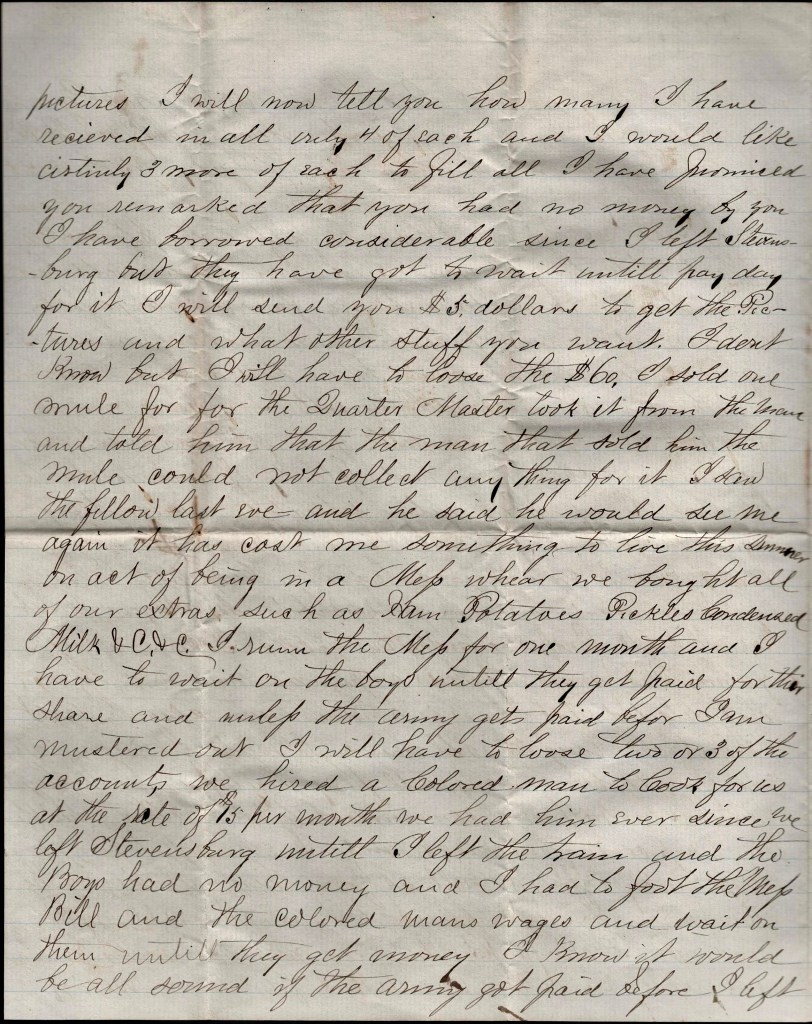 pictures I will now tell you how many I have
recieved in all only 4 of each and I would like
cirtinly 3 more of each to fill all I have promiced
you remarked that you had no money by you
I have borrowed considerable since I left Stevens-
-burg but they have got to wait untill pay day
for it I will send you $5. dollars to get the Pic-
-tures and what other stuff you want. I dont
Know but I will have to loose the $60. I sold one
mule for for the Quarter Master took it from the man
and told him that the man that sold him the
mule could not collect any thing for it I saw
the fellow last eve- and he said he would see me
again it has cost me something to live this summer
on act of being in a Mess whear we bought all
of our extras such as Ham Potatoes Pickles Condensed
Milk &C,&C. I runn the Mess for one month and I
have to wait on the boys untill they get paid for thir
share and unless the army gets paid befor I am
mustered out I will have to loose two or 3 of the
accounts we hired a Colored man to Cook for us
at the rate of $15 per month we had him ever since we
left Stevensburg untill I left the train and the
Boys had no money and I had to foot the Mess
Bill and the colored mans wages and wait on
them untill they get money I Know it would
be all sound if the army got paid before I left